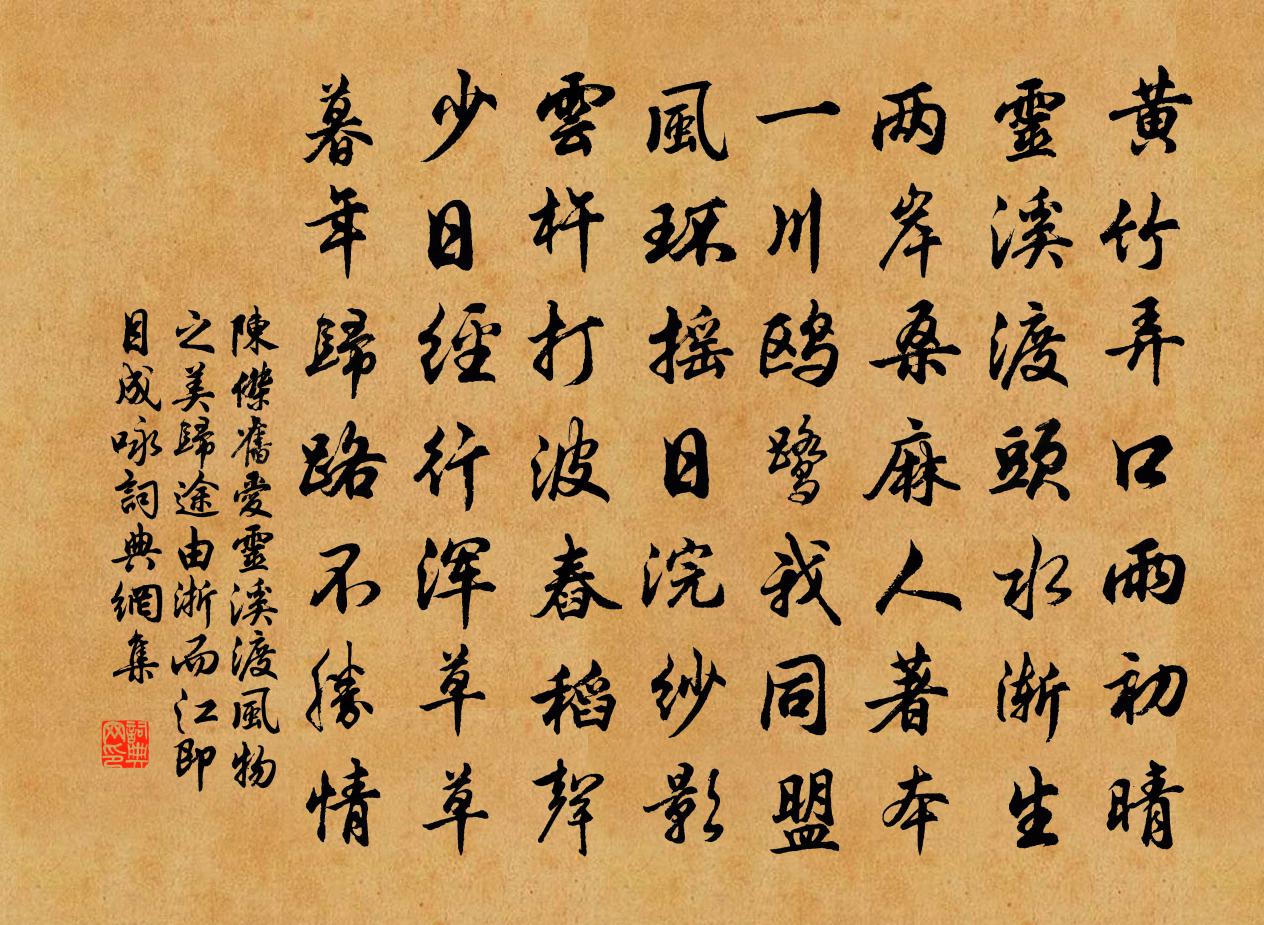 黄竹弄口雨初晴
靈溪渡頭水漸生
两岸桑麻人著本
一川鷗鷺我同盟
風环摇日浣紗影
雲杵打波舂稻聲
少日經行渾草草
暮年歸路不勝情
陳傑舊愛靈溪渡風物
之美歸途由浙而江即
目成咏詞典網集
詞典
网印